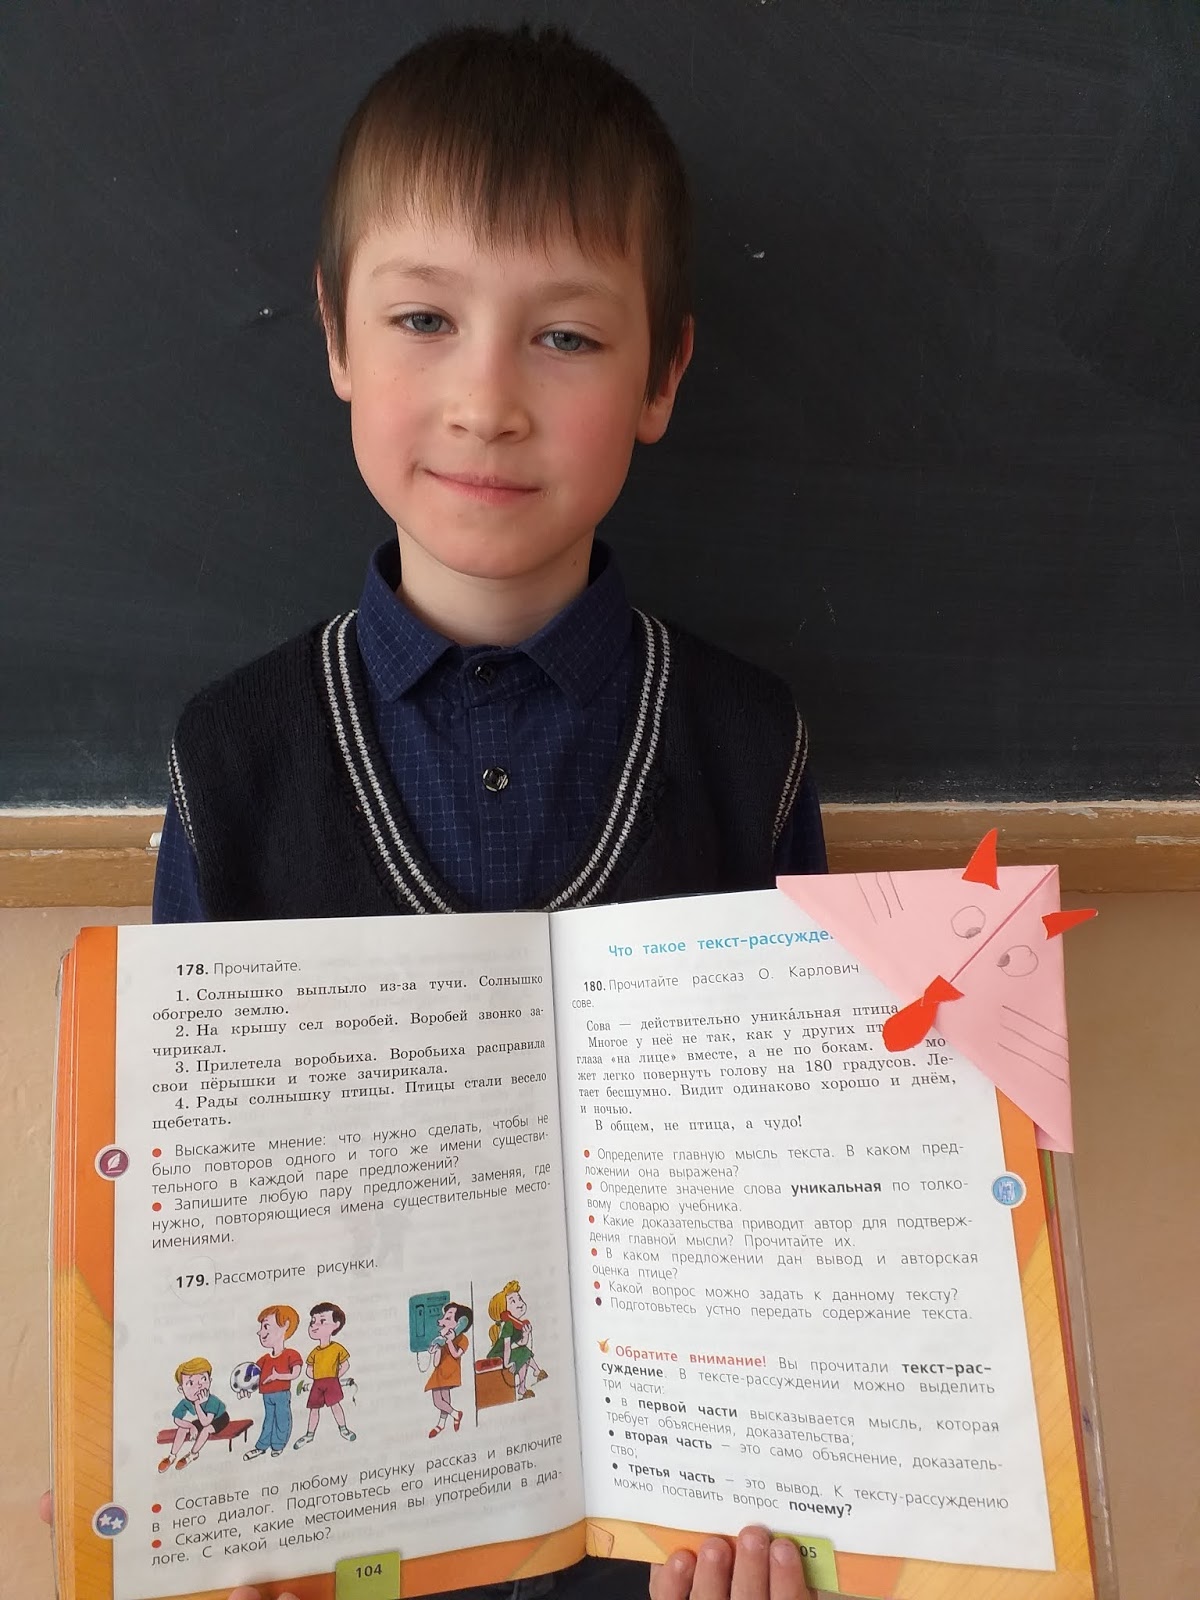 178. Прочитайте.
1. Солнышко выплыло из-за тучи. Солнышко
обогрело землю.
2. На крышу сел воробей. Воробей звонко за-
чирикал.
3. Прилетела воробьиха. Воробьиха расправила
свои пёрышки и тоже зачирикала.
4. Рады солнышку птицы. Птицы стали весело
щебетать.
● Выскажите мнение: что нужно сделать, чтобы не
было повторов одного и того же имени существи-
тельного в каждой паре предложений?
● Запишите любую пару предложений, заменяя, где
нужно, повторяющиеся имена существительные место-
имениями.
179. Рассмотрите рисунки.
● Составьте по любому рисунку рассказ и включите
в него диалог. Подготовьтесь его инсценировать.
● Скажите, какие местоимения вы употребили в диа-
логе. С какой целью?
104
Что такое текст-рассужде
180. Прочитайте рассказ О. Карлович
сове.
Сова — действительно уника́льная птица
Многое у неё не так, как у других пт
глаза «на лице» вместе, а не по бокам. мо
жет легко повернуть голову на 180 градусов. Ле-
тает бесшумно. Видит одинаково хорошо и днём,
и ночью.
В общем, не птица, а чудо!
● Определите главную мысль текста. В каком пред-
ложении она выражена?
● Определите значение слова уникальная по толко-
вому словарю учебника.
● Какие доказательства приводит автор для подтверж-
дения главной мысли? Прочитайте их.
● В каком предложении дан вывод и авторская
оценка птице?
● Какой вопрос можно задать к данному тексту?
● Подготовьтесь устно передать содержание текста.
Обратите внимание! Вы прочитали текст-рас-
суждение. В тексте-рассуждении можно выделить
три части:
• в первой части высказывается мысль, которая
требует объяснения, доказательства;
• вторая часть – это само объяснение, доказатель-
ство;
• третья часть – это вывод. К тексту-рассуждению
можно поставить вопрос почему?
05